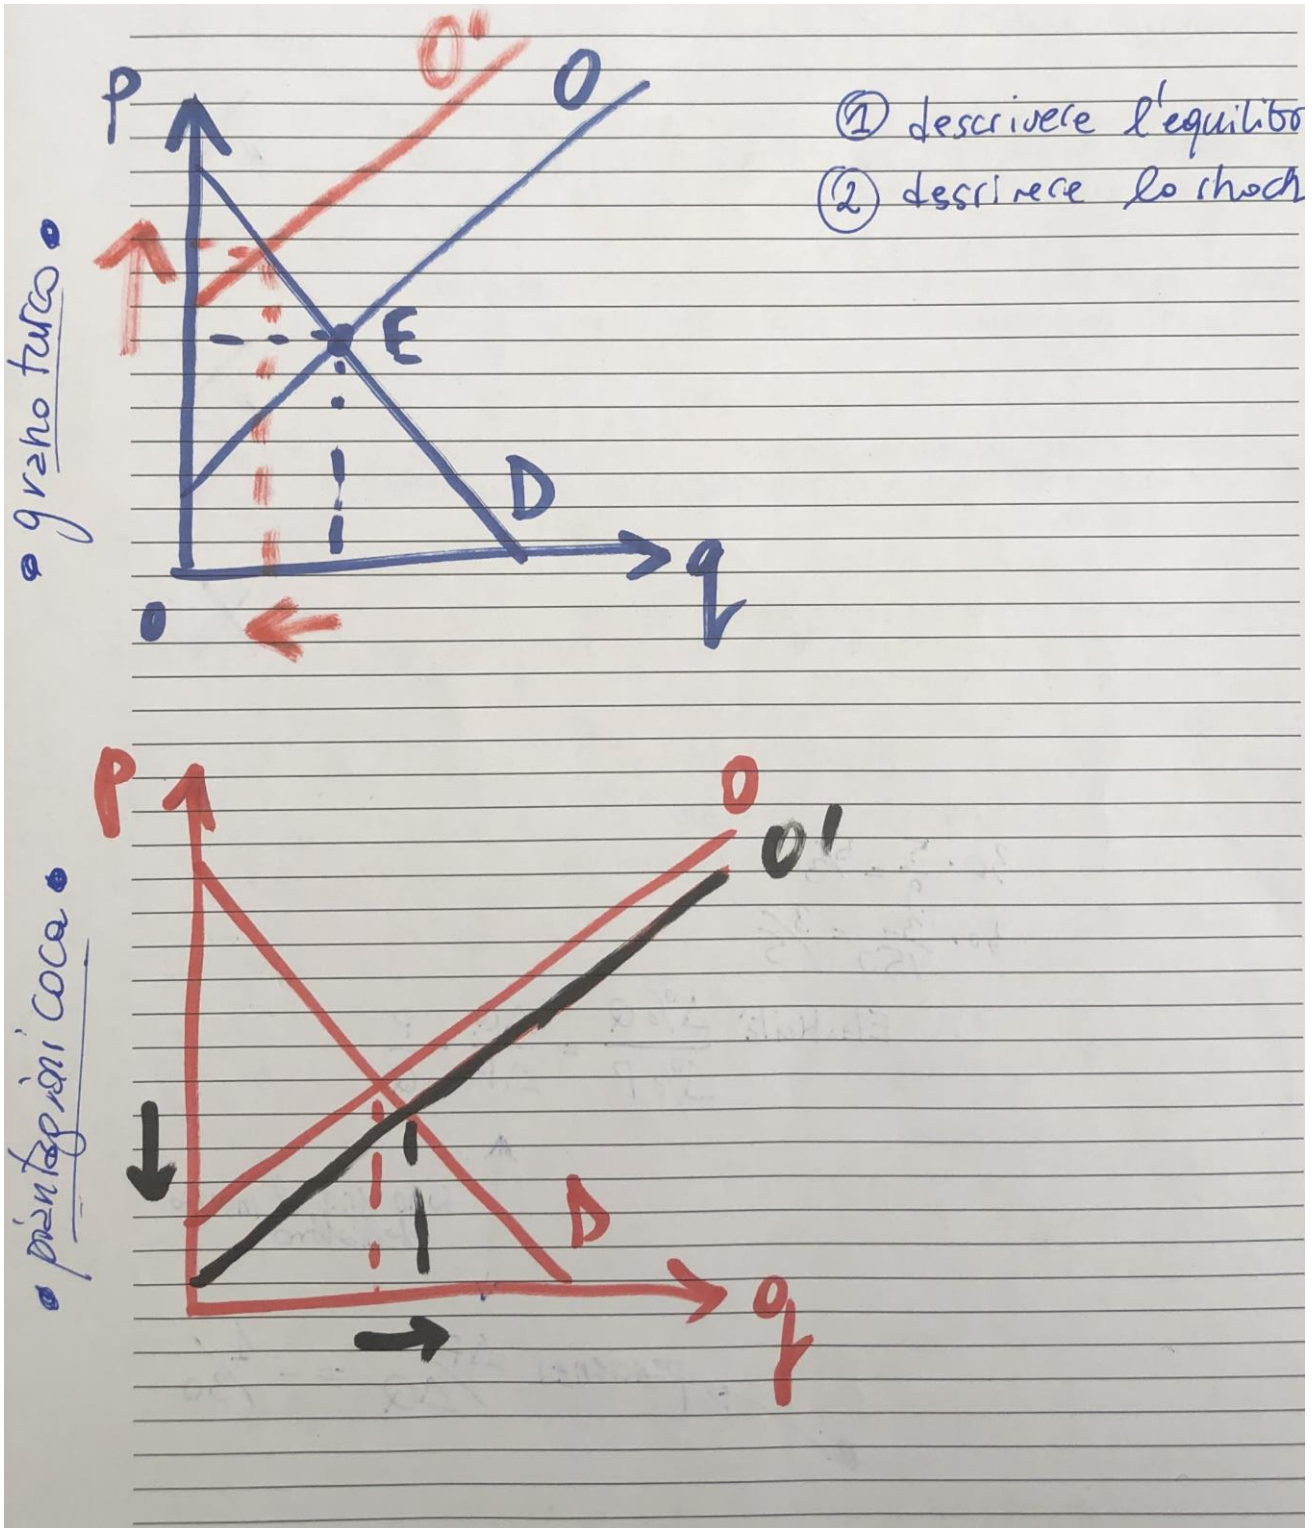 O'
O
P
① descrivere l'equilibr
② descrivere lo shock
• grano turco •
E
D
q
0
P
O
O'
• piantagioni coca •
D
q